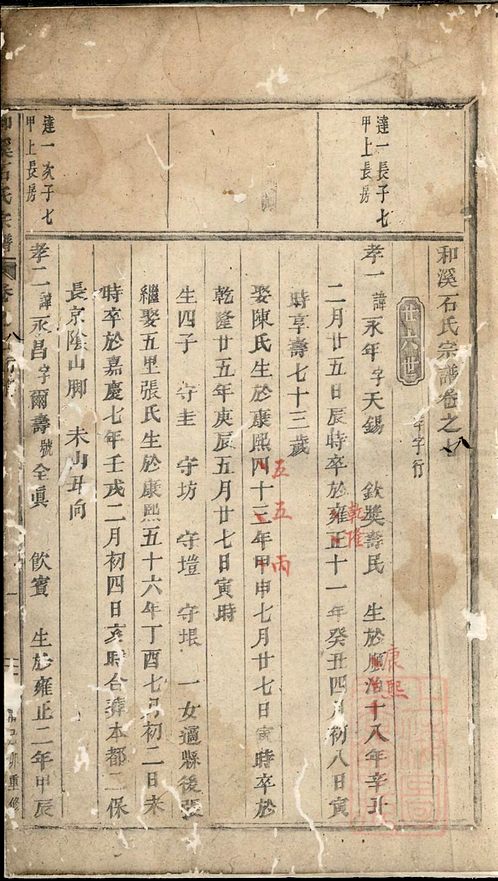 和溪石氏宗譜卷之七
廿六世
孝字行
達一長子七
甲上長房
孝一諱永年字天錫 欽奬壽民 生於順治十八年辛丑
康熙
二月廿五日辰時卒於雍正十一年癸丑四月初八日寅
乾隆
時享壽七十三歲
娶陳氏生於康熙四十三年甲申七月廿七日寅時卒於
五 五 丙
乾隆廿五年庚辰五月廿七日寅時
生四子 守圭 守坊 守塏 守垠 一女適縣後張
繼娶五里張氏生於康熙五十六年丁酉七月初二日未
時卒於嘉慶七年壬戌二月初四日亥時合葬本都二保
長京陰山脚 未山丑向
達一次子七
甲上長房
孝二諱永昌字爾壽號全眞 飲賓 生於雍正二年甲辰
和溪石氏宗譜 卷